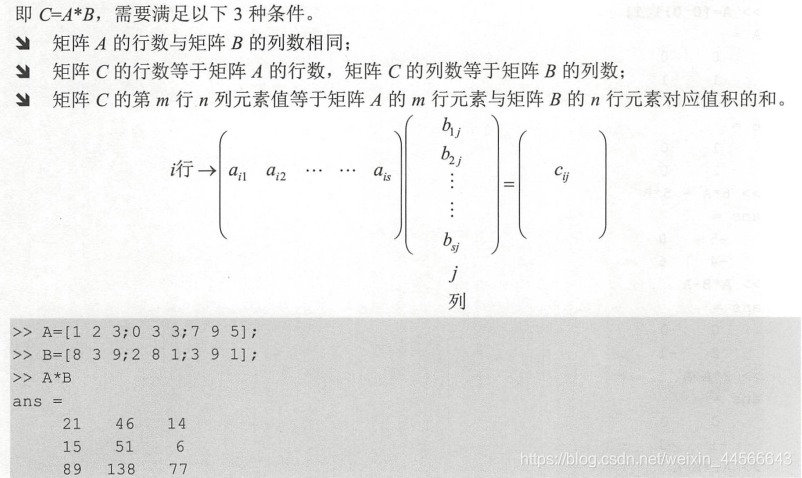 即 C=A*B，需要满足以下 3 种条件。
➘ 矩阵 A 的行数与矩阵 B 的列数相同；
➘ 矩阵 C 的行数等于矩阵 A 的行数，矩阵 C 的列数等于矩阵 B 的列数；
➘ 矩阵 C 的第 m 行 n 列元素值等于矩阵 A 的 m 行元素与矩阵 B 的 n 行元素对应值积的和。
b1j
b2j
i行 → ai1 ai2 ⋯ ⋯ ais ⋮ = cij
⋮
bsj
j
列
>> A=[1 2 3;0 3 3;7 9 5];
>> B=[8 3 9;2 8 1;3 9 1];
>> A*B
ans =
21 46 14
15 51 6
89 138 77
https://blog.csdn.net/weixin_44566643